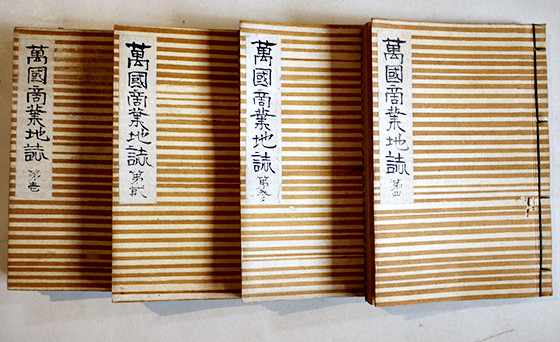 萬國商業地誌
第壱
萬國商業地誌
第貳
萬國商業地誌
第参
萬國商業地誌
第四